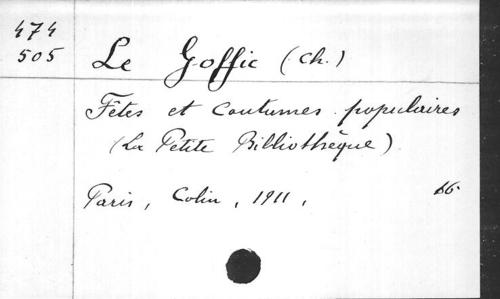 474
505
Le Goffic (Ch.)
Fêtes et Coutumes populaires
(La Petite Bibliothèque)
Paris, Colin, 1911,